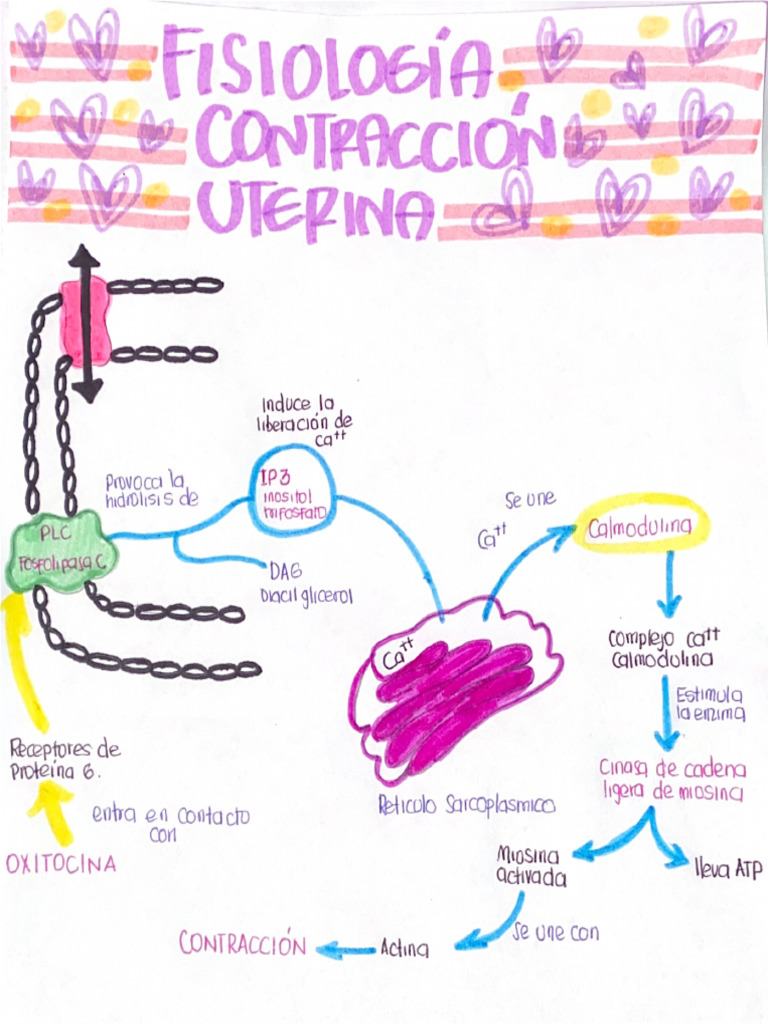 FISIOLOGÍA
CONTRACCIÓN
UTERINA
Induce la
liberación de
Ca++
IP3
inositol
trifosfato
Provoca la
hidrólisis de
PLC
Fosfolipasa C
DAG
Diacilglicerol
Se une
Ca++
Calmodulina
Complejo Ca++
Calmodulina
Estimula
la enzima
Cinasa de cadena
ligera de miosina
Ca++
Retículo Sarcoplasmico
Receptores de
Proteína G.
entra en contacto
con
OXITOCINA
Miosina
activada
lleva ATP
Se une con
Actina
CONTRACCIÓN